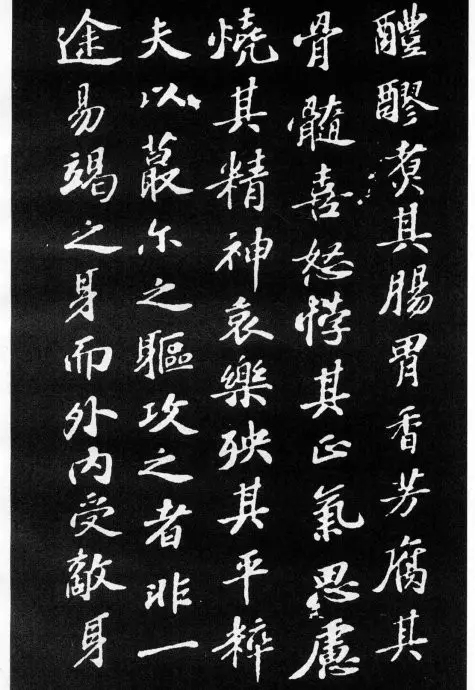 醴醪煮其腸胃香芳腐其
骨髓喜怒悖其正氣思慮
燒其精神哀樂殃其平粹
夫以蕞尔之驅攻之者非一
途易竭之身而外内受敵身